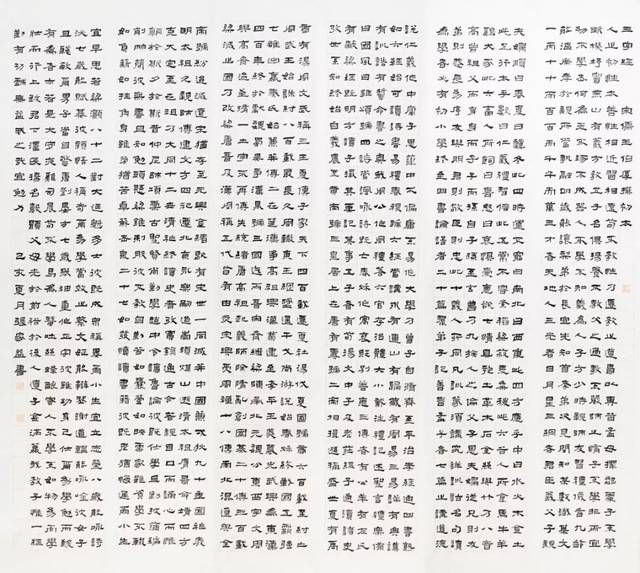 三字經 宋儒王伯厚撰初本
人之初性本善性相近習相遠苟不教性乃遷教之道貴以專昔孟母擇鄰處子不學
斷機杼竇燕山有義方教五子名俱揚養不教父之過教不嚴師之惰子不學非所宜
幼不學老何為玉不琢不成器人不學不知義為人子方少時親師友習禮儀香九齡
能溫席孝於親所當執融四歲能讓梨弟於長宜先知首孝弟次見聞知某數識某文
一而十十而百百而千千而萬三才者天地人三光者日月星三綱者君臣義父子親
夫婦順曰春夏曰秋冬此四時運不窮曰南北曰西東此四方應乎中曰水火木金土
此五行本乎數曰仁義禮智信此五常不容紊稻粱菽麥黍稷此六穀人所食馬牛羊
鷄犬豕此六畜人所飼曰喜怒曰哀懼愛惡欲七情具匏土革木石金絲與竹乃八音
高曾祖父而身身而子子而孫自子孫至玄曾乃九族人之倫父子恩夫婦從兄則友
弟則恭長幼序友與朋君則敬臣則忠此十義人所同凡訓蒙須講究詳訓詁明句讀
為學者必有初小學終至四書論語者二十篇群弟子記善言孟子者七篇止講道德
說仁義作中庸子思筆中不偏庸不易作大學乃曾子自修齊至平治孝經通四書熟
如六經始可讀詩書易禮春秋號六經當講求有連山有歸藏有周易三易詳有典謨
有訓誥有誓命書之奧我周公作周禮著六官存治體大小戴註禮記述聖言禮樂備
曰國風曰雅頌號四詩當諷詠詩既亡春秋作寓褒貶別善惡三傳者有公羊有左氏
有穀梁經既明方讀子撮其要記其事五子者有荀揚文中子及老莊經子通讀諸史
考世系知終始自羲農至黃帝號三皇居上世唐有虞號二帝相揖遜稱盛世夏有禹
商有湯周文武稱三王夏傳子家天下四百載遷夏社湯伐夏國號商六百載至紂亡
周武王始誅紂八百載最長久周轍東王綱墜逞干戈尚游說始春秋終戰國五霸強
七雄出嬴秦氏始兼併傳二世楚漢爭高祖興漢業建至孝平王莽篡光武興為東漢
四百年終於獻魏蜀吳爭漢鼎號三國迄兩晉宋齊繼梁陳承北元魏分東西宇文周
與高齊迨至隋一土宇不再傳失統緒唐高祖起義師除隋亂創國基二十傳三百載
梁滅之國乃改梁唐晉及漢周稱五代皆有由炎宋興受周禪十八傳南北混遼與金
號紛滅遼宋猶存至元興金緒歇有宋世一同滅并中國兼戎狄九十年國祚廢
明太祖久親師傳建文方四祀遷北京永樂嗣迨崇禎煤山逝清太祖膺景命靖四方
克大定十二世清祚終讀史者考實錄通古今若親目口而誦心而惟
朝於斯夕於斯昔仲尼師項橐古聖賢尚勤學趙中令讀魯論彼既仕學且勤披蒲編
削竹簡彼無書且知勉頭懸梁錐刺股彼不教自勤苦如囊螢如映雪家雖貧學不輟
如負薪如掛角身雖勞猶苦卓蘇老泉二十七始發憤讀書籍彼既老猶悔遲爾小生
宜早思若梁灝八十二對大廷魁多士彼既成眾稱異爾小生宜立志瑩八歲能詠詩
泌七歲能賦棋彼穎悟人稱奇爾幼學當效之蔡文姬能辨琴謝道韞能詠吟彼女子
且聰敏爾男子當自警唐劉晏方七歲舉神童作正字彼雖幼身己仕爾幼學勉而致
有為者亦若是犬守夜雞司晨苟不學曷為人蠶吐絲蜂釀蜜人不學不如物幼而學
壯而行上致君下澤民揚名聲顯父母光於前裕於後人遺子金滿籯我教子惟一經
勤有功戲無益戒之哉宜勉力 己亥夏月張家益書